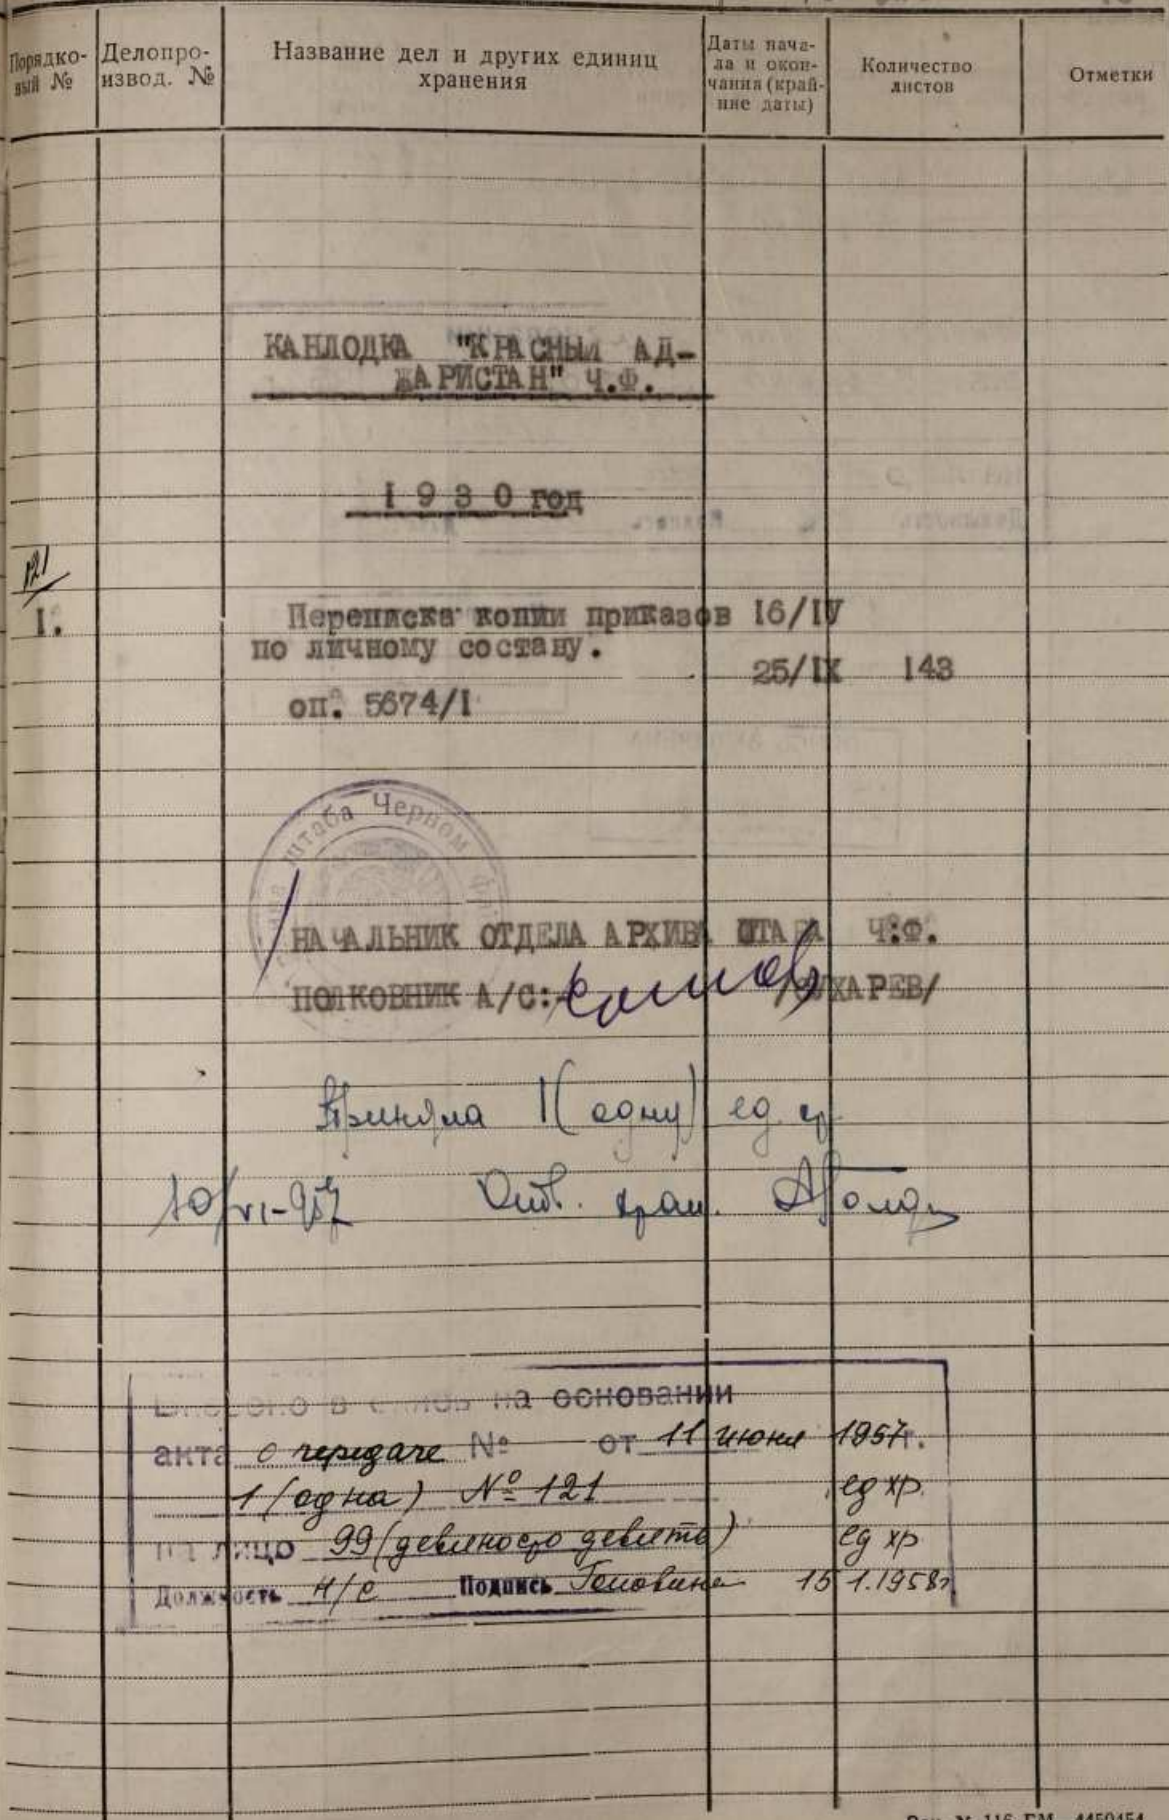 Порядко-
вый №
Делопро-
извод. №
Название дел и других единиц
хранения
Даты нача-
ла и окон-
чания (край-
ние даты)
Количество
листов
Отметки
КАНЛОДКА "КРАСНЫЙ АД-
ЖАРИСТАН" Ч.Ф.
1 9 3 0 год
121
I. Переписка копии приказов 16/IV
по личному составу.
25/IX 143
оп. 5674/I
штаба Черном
НАЧАЛЬНИК ОТДЕЛА АРХИВА ШТАБА Ч.Ф.
ПОЛКОВНИК А/С: /СУХАРЕВ/
Приняла 1 (одну) ед. хр.
10/VI-957 Отв. хран.
Внесено в опись на основании
акта о передаче № от 11 июня 1957г.
1 (одна) № 121 ед хр.
на лицо 99 (девяносто девять) ед хр
Должность н/с Подпись 15 1.1958г